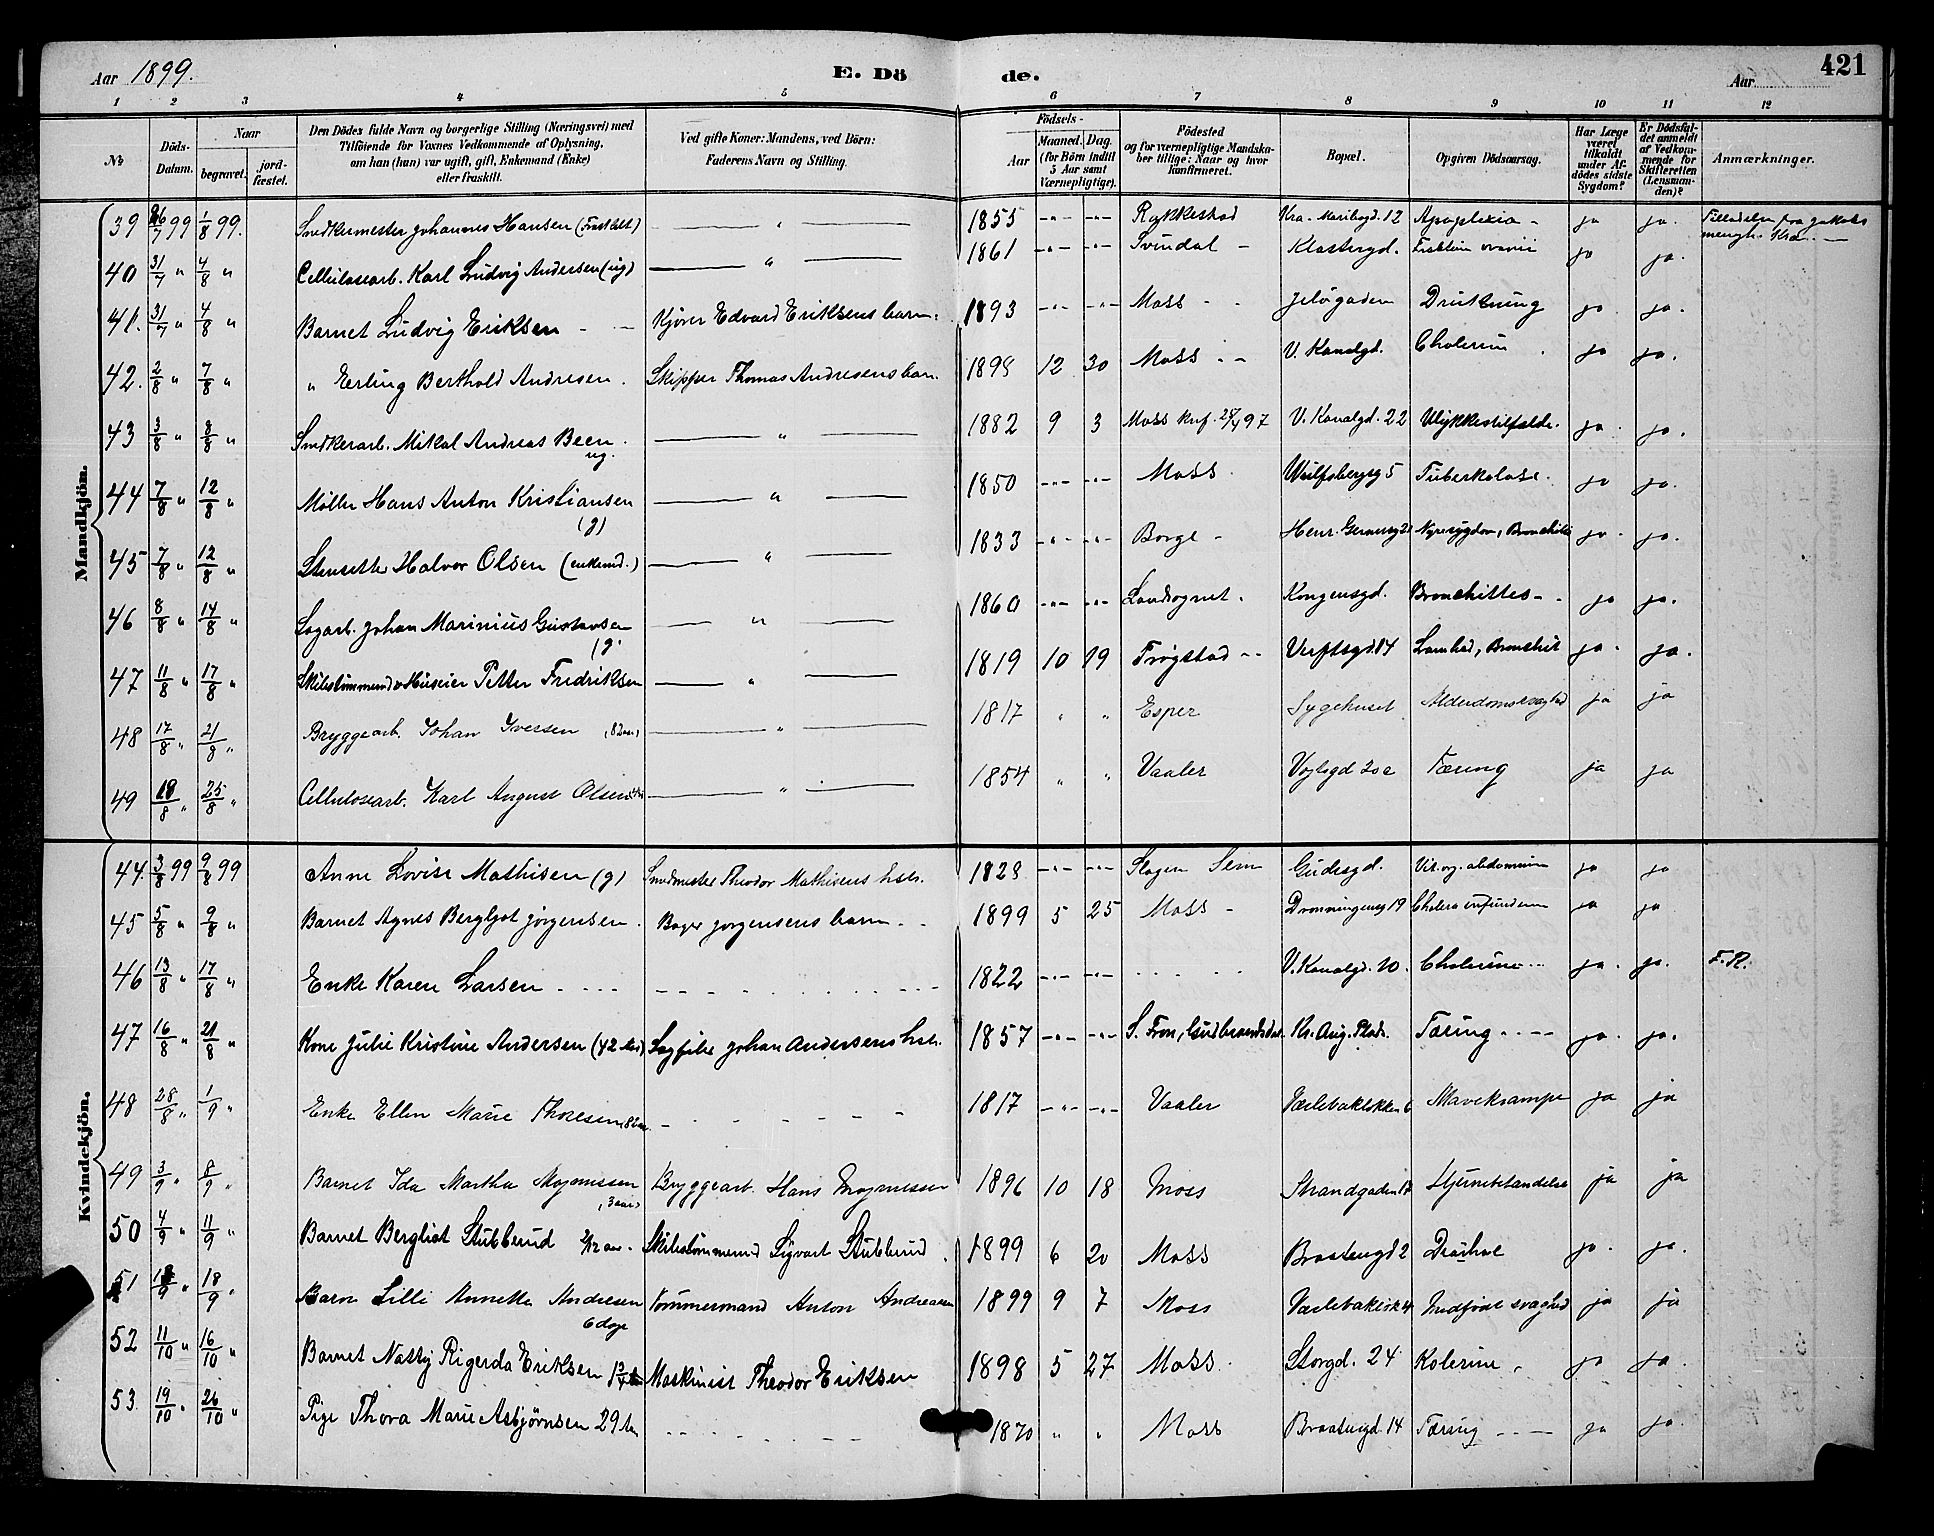 Aar 1899. E. Dö de. Aar 421
1 2 3 4 5 6 7 8 9 10 11 12
№ Döds-Datum. Naar begravet. jordfæstet. Den Dödes fulde Navn og borgerlige Stilling (Næringsvei) med Tilföiende for Voxnes Vedkommende af Oplysning, om han (hun) var ugift, gift, Enkemand (Enke) eller fraskilt. Ved gifte Koner: Mandens, ved Börn: Faderens Navn og Stilling. Födsels- Aar Maaned. Dag. (for Börn indtil 5 Aar samt Værnepligtige). Födested og for værnepligtige Mandskaber tillige: Naar og hvor konfirmeret. Bopæl. Opgiven Dödsaarsag. Har Læge været tilkaldt under Afdödes sidste Sygdom? Er Dödsfaldet anmeldt af Vedkommende for Skifteretten (Lensmanden)? Anmærkninger.
Mandkjön.
39 26/7 99 1/8 99. Snedkermester Johannes Hansen - " - 1855 -"- -"- Rakkestad Kra. Maribogd. 12 Apoplexia - ja ja.
40 31/7 " 4/8 " Cellulosearb. Karl Ludvig Andersen (ug) - " - 1861 -"- -"- Svindal - Klostergd. ja ja.
41. 31/7 " 4/8 " Barnet Ludvig Eriksen - - Kjører Edvard Eriksens barn. 1893 -"- -"- Moss - - Jeløgaden Drukning ja. ja.
42. 2/8 " 7/8 " " Erling Berthold Andresen. Skipper Thomas Andresens barn. 1898 12 30 Moss - - V. Kanalgd. Cholerin ja ja.
43 3/8 " 8/8 " Snedkerarb. Mikal Andreas Been. ug. - " - 1882 9 3 Moss knf. 25/4 97 V. Kanalgd. 22 Ulykkestilfælde. ja. ja.
44 7/8 " 12/8 " Møller Hans Anton Kristiansen (g) - " - 1850 -"- -"- Moss. Wulfsbergsg 5 Tuberkolose. ja ja.
45 7/8 " 12/8 " Stensetter Halvor Olsen (enkemd.) - " - 1833 -"- -"- Borge - Henr. Gernersg 21 Nyresygdom, Bronchitis ja. ja.
46 8/8 " 14/8 " Sagarb. Johan Marinius Gustavsen (g. - " - 1860 -"- -"- Landsognet. Kongensgd. Bronchittes - - ja ja.
47 11/8 " 17/8 " Skibstømmermd & Huseier Petter Fredriksen - " - 1819 10 19 Trøgstad - - Verftsgd. 14 Lamhed, Bronchit ja. ja.
48 17/8 " 21/8 " Bryggearb. Johan Iversen (82 aar) - " - 1817 " " Esper Sygehuset Alderdomssvaghed ja ja
49 18/8 " 25/8 " Cellulosearb. Karl August Olsen - " - 1854 " " Vaaler Vogtsgd 20a Tæring ja ja
Kvindekjön.
44. 3/8 99 9/8 99 Anne Lovise Mathisen (g) Snedmester Theodor Mathisens hstr. 1828 -"- -"- Slagen Sem Gudesgd. ja ja
45 5/8 " 9/8 " Barnet Agnes Bergljot Jørgensen. Bager Jørgensens barn. - - 1899 5 25 Moss - Dronningensg 19 Cholera infundum ja ja
46 13/8 " 17/8 " Enke Karen Larsen - - - - 1822 -"- -"- - - - - V. Kanalgd. 10. Cholerine - - ja. ja. F.R.
47 16/8 " 21/8 " Kone Julie Kristine Andersen (42 aar) Sagfiler Johan Andersens hstr. 1857 -"- -"- S. Fron, Gudbrandsdal Kr. Aug. Plads. Tæring - - - ja. ja.
48 28/8 " 1/9 " Enke Ellen Marie Thoresen (82 aar. - - - - 1817 -"- -"- Vaaler Værlebakløkken 6 Mavekrampe ja ja
49 3/9 " 8/9 " Barnet Ida Martha Mognessen (3 aar) Bryggearb. Hans Mognessen 1896 10 18 Moss Strandgaden 17 Hjernebetændelse ja ja
50 4/9 " 11/9 " Barnet Bergliot Stubberud 2/12 aar. Skibstømmermd Sigvart Stubberud. 1899 6 20 Moss Braatengd 2 Diarhoe ja. ja.
51 13/9 " 18/9 " Barn Lilli Annette Andresen 6 dage Tømmermand Anton Andreasen 1899 9 7 Moss Værlebakløk 4 Medfødt svaghed ja ja
52 11/10 " 16/10 " Barnet Natty Rigerda Eriksen Maskinist Theodor Eriksen 1898 5 27 Moss. Storgd. 24 Kolerine. ja ja.
53 19/10 " 26/10 " Pige Thora Marie Asbjørnsen 29 aar - - - - 1870 " " Moss Braatengd 14 Tæring - - - ja ja.